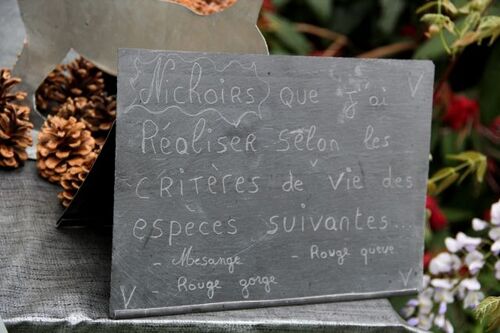 Nichoirs que j'ai
Réaliser selon les
critères de vie des
especes suivantes...
- Mesange - Rouge queue
- Rouge gorge